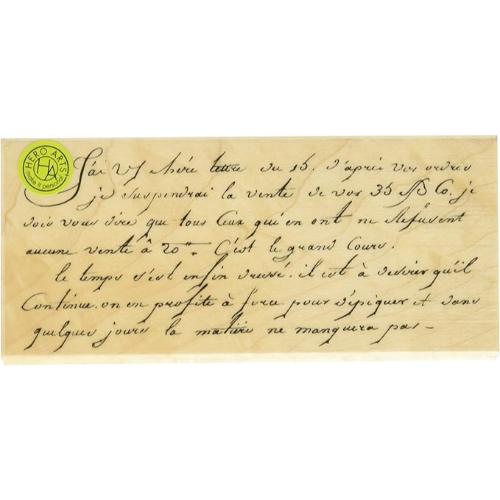 HERO ARTS
HA
J'ai V/ chére lettre du 15. d'après vos ordres
je suspendrai la vente de vos 35 Co. je
dois vous dire que tous Ceux qui en ont ne Refusent
aucune vente à 20". C'est le grand Cours.
le temps s'est enfin dressé. il est à desirer qu'il
Continue. on en profite à force pour dépiquer et dans
quelques jours la matiére ne manquera pas_